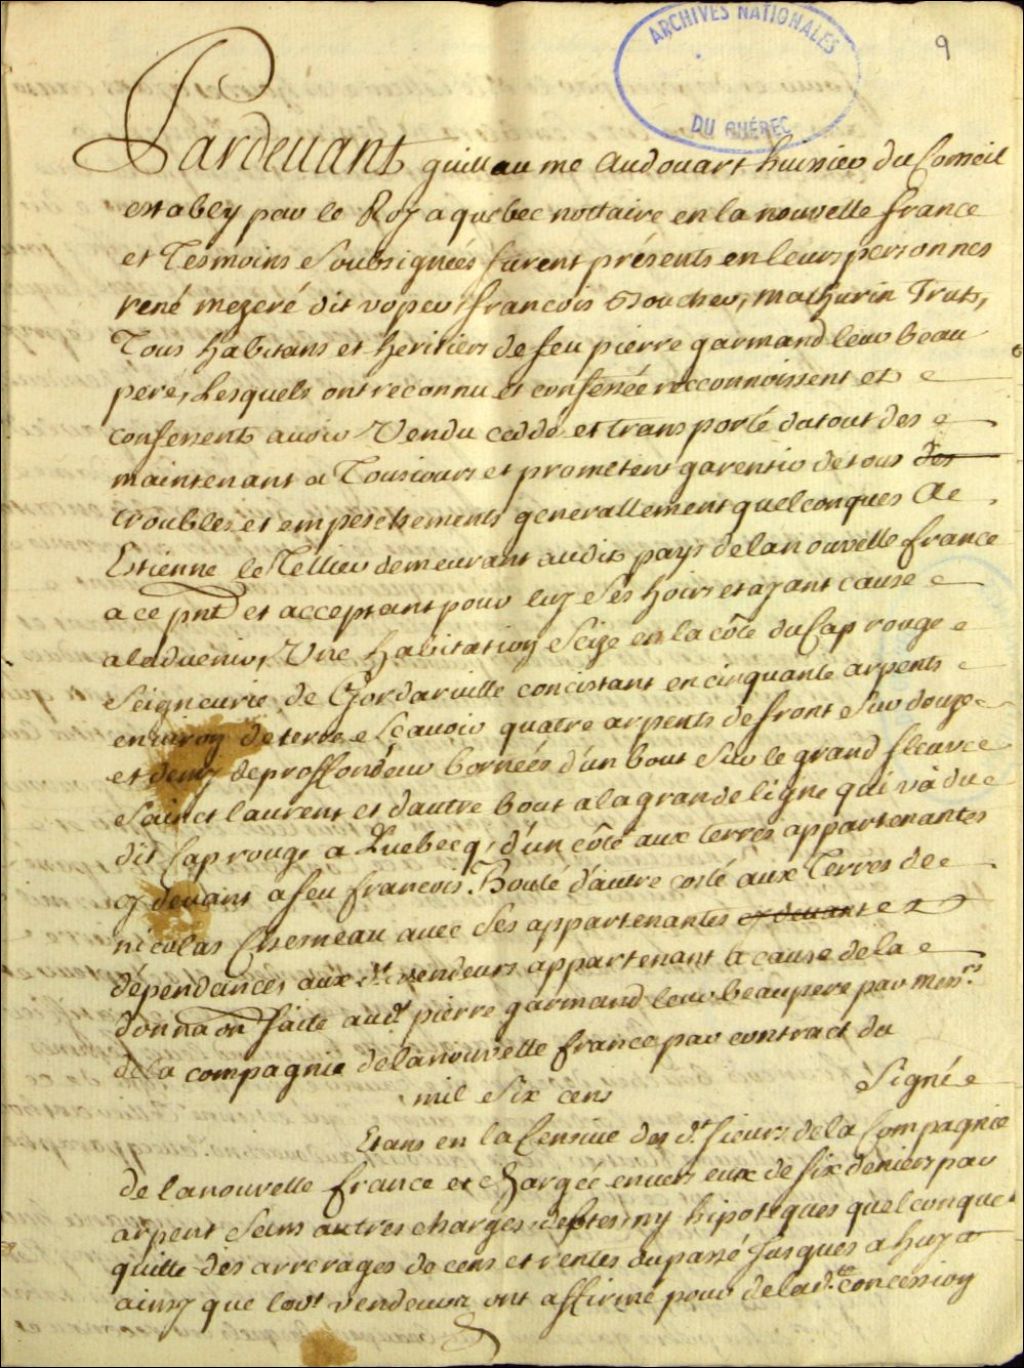 ARCHIVES NATIONALES
DU QUÉBEC
9
Pardevant guillaume Audouart huissier du Conseil
estably par le Roy a quebec nottaire en la nouvelle france
et Tesmoins soubsignées furent présents en leurs personnes
rené mezeré dit nopeu, francois Boucher, mathurin Trut,
Tous habitans et heritiers de feu pierre garmand leur beau
pere, Lesquels ont reconnu et confessée recconnoissent et
confessent avoir Vendu ceddé et transporté du tout des
maintenant a Tousiours et prometent garentir de tous des
troubles et empeschements generallement quelconques Ae
Estienne leTellier demeurant audit pays de la nouvelle france
a ce pnt et acceptant pour luy ses hoirs et ayant cause
aladvenir, Une habitation Seize en la côte du Cap rouge
Seigneurie de Gordarville concistant en cinquante arpents
environ de terre Scavoir quatre arpents de front sur douze
et demy de proffondeur bornées d'un bout sur le grand fleuve
Sainct laurent et dautre bout a la grande ligne qui và du
dit Cap rouge a Quebecq, d'un côté aux terres appartenantes
cy devant a feu francois Boulé d'autre costé aux Terres de
nicolas Chesneau avec ses appartenantes cy devant et
dépendances aux dt. vendeurs appartenant a cause de la
donnaon faite aud. pierre garmand leur beaupere par Messrs.
de la compagnie de la nouvelle france par contract du
mil six cens Signé
Estans en la Censive des dt. Sieurs de la Compagnie
de la nouvelle france et chargée envers eux de six deniers par
arpent sans autres charges debtes ny hipoteques quelconque
quitte des arrerages de cens et rentes du passé jusques a huy
ainsy que lesdt vendeurs ont affirmé pour de lad.te concession